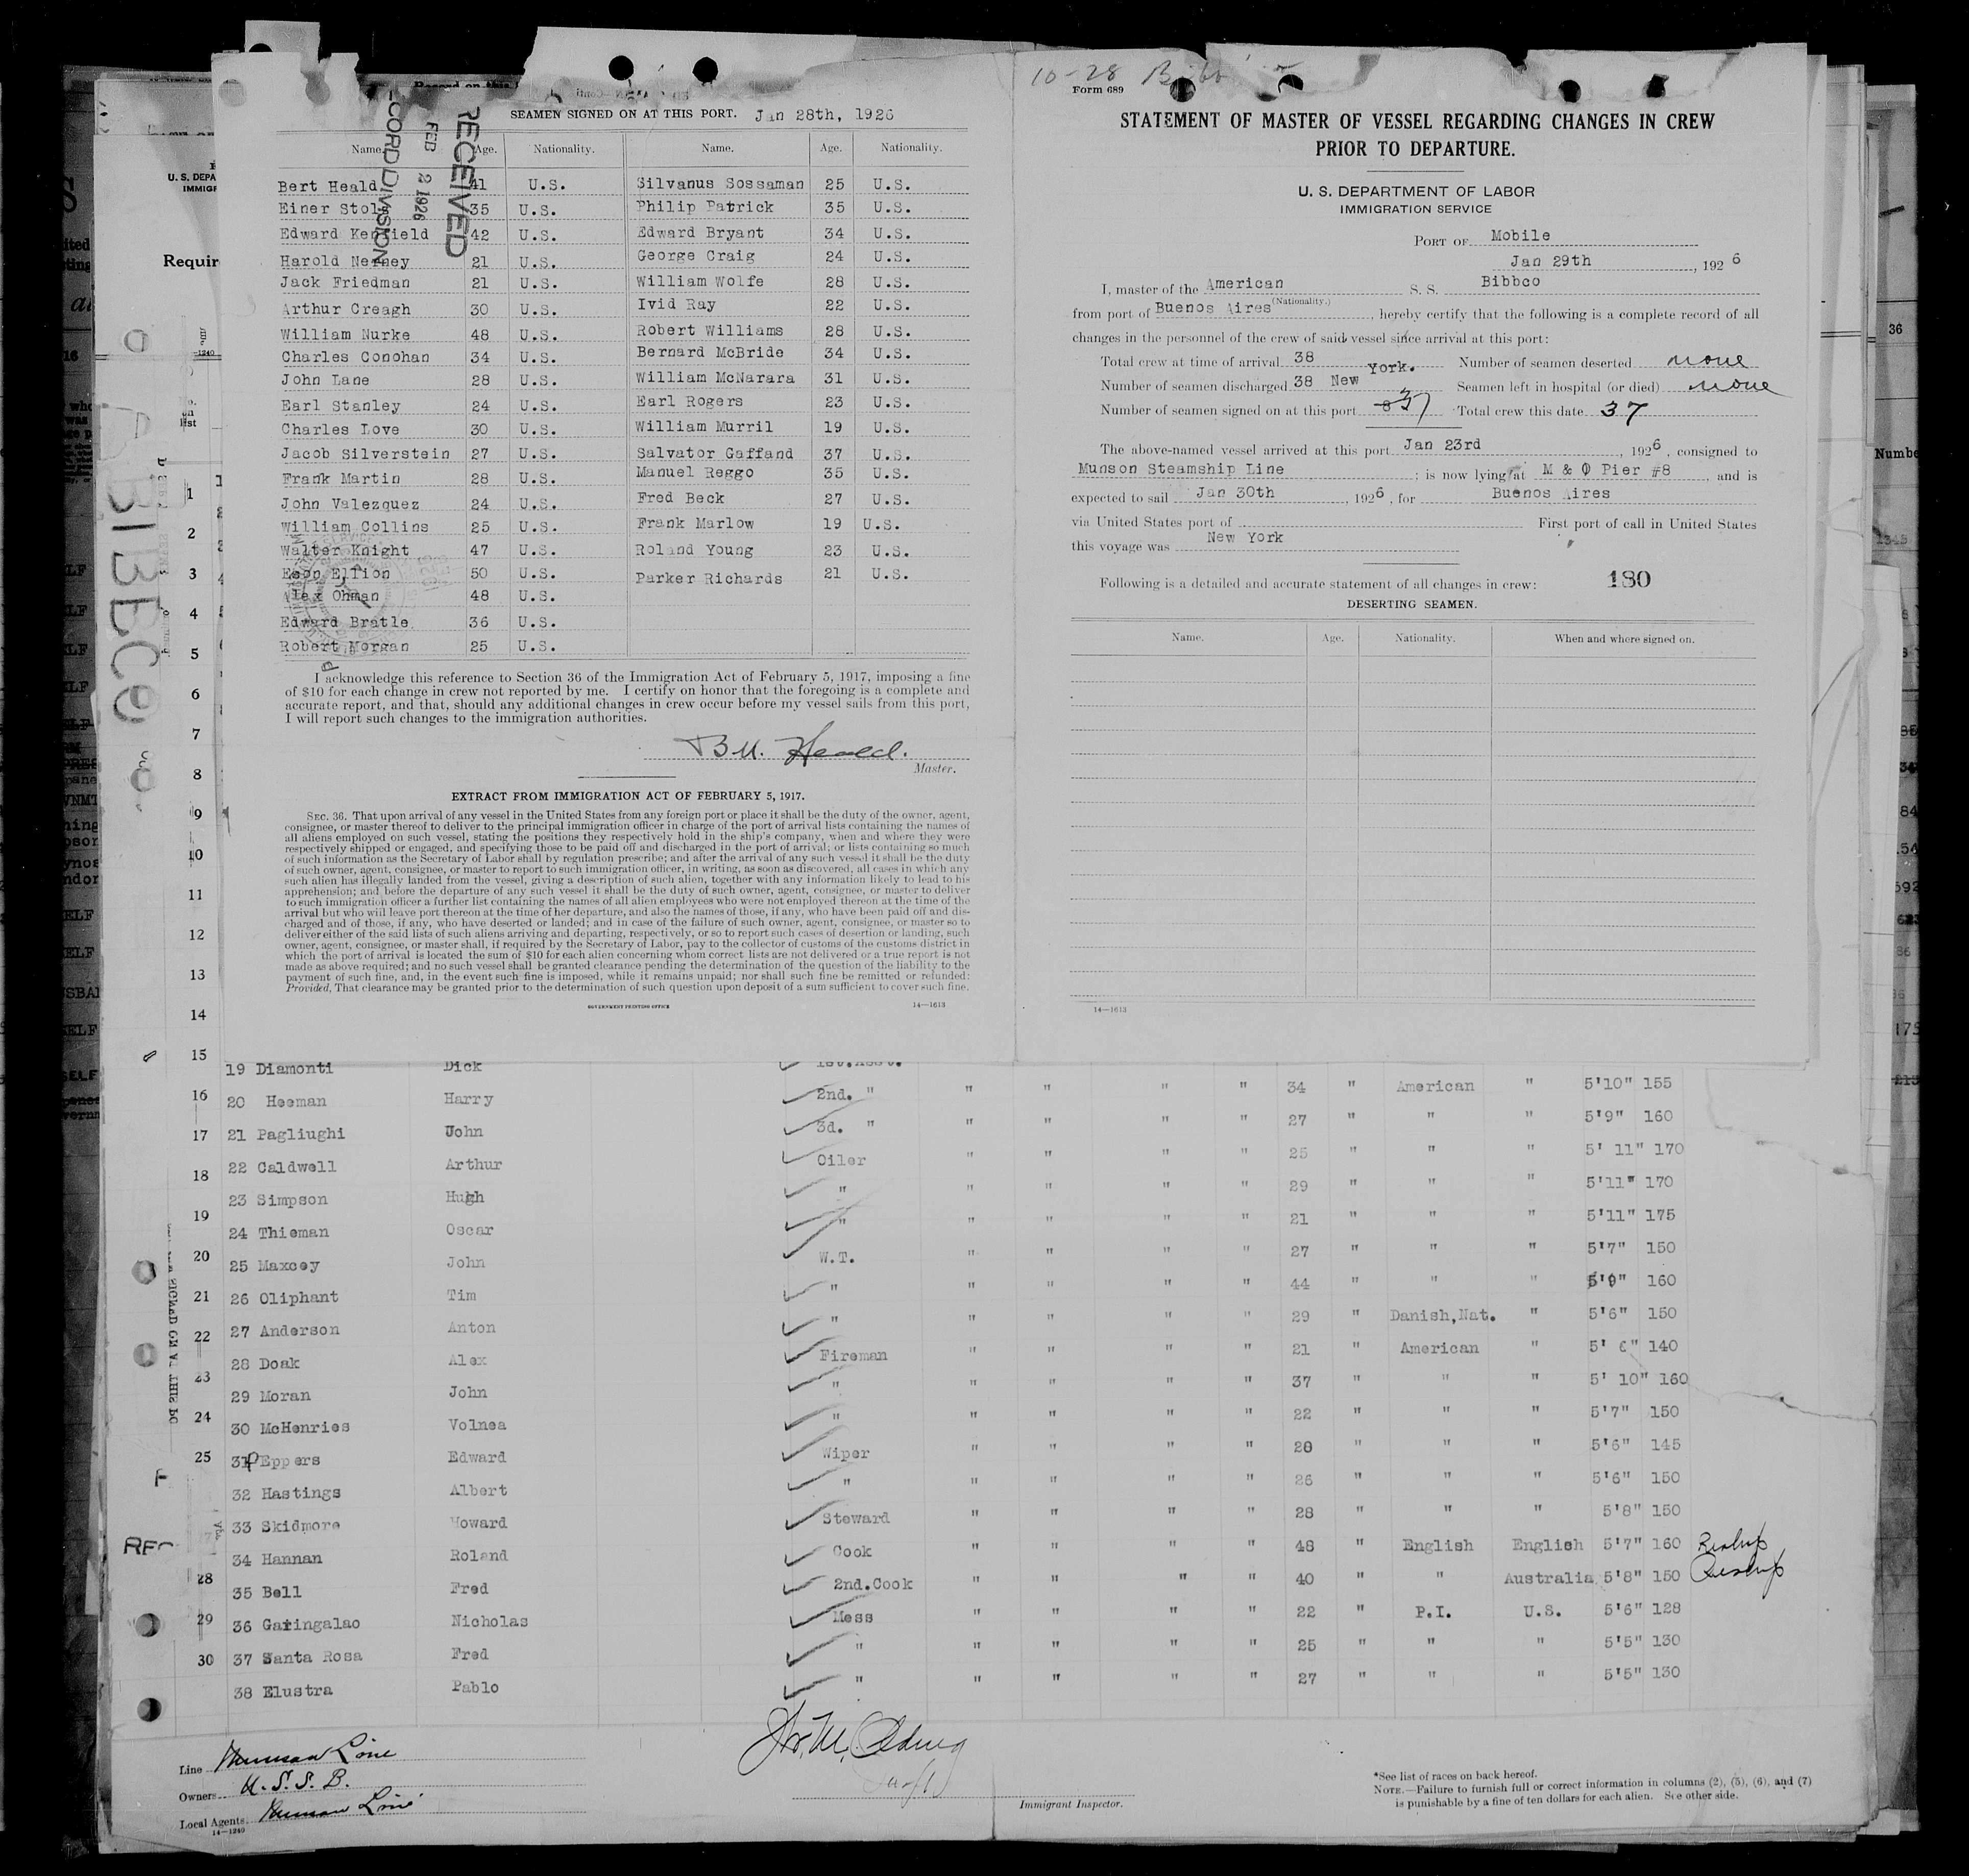 SEAMEN SIGNED ON AT THIS PORT. Jan 28th, 1926
Name. Age. Nationality. Name. Age. Nationality.
Bert Heald 41 U.S. Silvanus Sossaman 25 U.S.
Einer Stol 35 U.S. Philip Patrick 35 U.S.
Edward Kenfield 42 U.S. Edward Bryant 34 U.S.
Harold Nerney 21 U.S. George Craig 24 U.S.
Jack Friedman 21 U.S. William Wolfe 28 U.S.
Arthur Creagh 30 U.S. Ivid Ray 22 U.S.
William Nurke 48 U.S. Robert Williams 28 U.S.
Charles Conohan 34 U.S. Bernard McBride 34 U.S.
John Lane 28 U.S. William McNarara 31 U.S.
Earl Stanley 24 U.S. Earl Rogers 23 U.S.
Charles Love 30 U.S. William Murril 19 U.S.
Jacob Silverstein 27 U.S. Salvator Gaffand 37 U.S.
Frank Martin 28 U.S. Manuel Reggo 35 U.S.
John Valezquez 24 U.S. Fred Beck 27 U.S.
William Collins 25 U.S. Frank Marlow 19 U.S.
Walter Knight 47 U.S. Roland Young 23 U.S.
Ellion 50 U.S. Parker Richards 21 U.S.
Alex Ohman 48 U.S.
Edward Bratle 36 U.S.
Robert Morgan 25 U.S.
RECEIVED
FEB 2 1926
RECORD DIVISION
I acknowledge this reference to Section 36 of the Immigration Act of February 5, 1917, imposing a fine
of $10 for each change in crew not reported by me. I certify on honor that the foregoing is a complete and
accurate report, and that, should any additional changes in crew occur before my vessel sails from this port,
I will report such changes to the immigration authorities.
B M. Heald.
Master.
EXTRACT FROM IMMIGRATION ACT OF FEBRUARY 5, 1917.
SEC. 36. That upon arrival of any vessel in the United States from any foreign port or place it shall be the duty of the owner, agent,
consignee, or master thereof to deliver to the principal immigration officer in charge of the port of arrival lists containing the names of
all aliens employed on such vessel, stating the positions they respectively hold in the ship's company, when and where they were
respectively shipped or engaged, and specifying those to be paid off and discharged in the port of arrival; or lists containing so much
of such information as the Secretary of Labor shall by regulation prescribe; and after the arrival of any such vessel it shall be the duty
of such owner, agent, consignee, or master to report to such immigration officer, in writing, as soon as discovered, all cases in which any
such alien has illegally landed from the vessel, giving a description of such alien, together with any information likely to lead to his
apprehension; and before the departure of any such vessel it shall be the duty of such owner, agent, consignee, or master to deliver
to such immigration officer a further list containing the names of all alien employees who were not employed thereon at the time of the
arrival but who will leave port thereon at the time of her departure, and also the names of those, if any, who have been paid off and dis-
charged and of those, if any, who have deserted or landed; and in case of the failure of such owner, agent, consignee, or master so to
deliver either of the said lists of such aliens arriving and departing, respectively, or so to report such cases of desertion or landing, such
owner, agent, consignee, or master shall, if required by the Secretary of Labor, pay to the collector of customs of the customs district in
which the port of arrival is located the sum of $10 for each alien concerning whom correct lists are not delivered or a true report is not
made as above required; and no such vessel shall be granted clearance pending the determination of the question of the liability to the
payment of such fine, and, in the event such fine is imposed, while it remains unpaid; nor shall such fine be remitted or refunded:
Provided, That clearance may be granted prior to the determination of such question upon deposit of a sum sufficient to cover such fine.
GOVERNMENT PRINTING OFFICE 14—1613
10-28
Form 689
STATEMENT OF MASTER OF VESSEL REGARDING CHANGES IN CREW
PRIOR TO DEPARTURE.
U. S. DEPARTMENT OF LABOR
IMMIGRATION SERVICE
PORT OF Mobile
Jan 29th, 1926
I, master of the American S. S. Bibbco
(Nationality.)
from port of Buenos Aires, hereby certify that the following is a complete record of all
changes in the personnel of the crew of said vessel since arrival at this port:
Total crew at time of arrival 38 Number of seamen deserted none
Number of seamen discharged 38 New York. Seamen left in hospital (or died) none
Number of seamen signed on at this port 37 Total crew this date 37
The above-named vessel arrived at this port Jan 23rd, 1926, consigned to
Munson Steamship Line; is now lying at M & O Pier #8, and is
expected to sail Jan 30th, 1926, for Buenos Aires
via United States port of First port of call in United States
this voyage was New York
Following is a detailed and accurate statement of all changes in crew: 180
DESERTING SEAMEN.
Name. Age. Nationality. When and where signed on.
14—1613
19 Diamonti Dick 1st.Asst.
20 Heeman Harry 2nd. " " " " " 34 " American " 5'10" 155
21 Pagliughi John 3d. " " " " " 27 " " " 5'9" 160
22 Caldwell Arthur Oiler " " " " 25 " " " 5' 11" 170
23 Simpson Hugh " " " " " 29 " " " 5'11" 170
24 Thieman Oscar " " " " " 21 " " " 5'11" 175
25 Maxcey John W.T. " " " " 27 " " " 5'7" 150
26 Oliphant Tim " " " " " 44 " " " 5'9" 160
27 Anderson Anton " " " " " 29 " Danish,Nat. " 5'6" 150
28 Doak Alex Fireman " " " " 21 " American " 5' 6" 140
29 Moran John " " " " " 37 " " " 5' 10" 160
30 McHenries Volnea " " " " " 22 " " " 5'7" 150
31 Eppers Edward Wiper " " " " 28 " " " 5'6" 145
32 Hastings Albert " " " " " 26 " " " 5'6" 150
33 Skidmore Howard Steward " " " " 28 " " " 5'8" 150
34 Hannan Roland Cook " " " " 48 " English English 5'7" 160
35 Bell Fred 2nd.Cook " " " " 40 " " Australia 5'8" 150
36 Garingalao Nicholas Mess " " " " 22 " P.I. U.S. 5'6" 128
37 Santa Rosa Fred " " " " " 25 " " " 5'5" 130
38 Elustra Pablo " " " " " 27 " " " 5'5" 130
Line Munson Line
Owners U. S. S. B.
Local Agents Munson Line
14—1240
Immigrant Inspector.
*See list of races on back hereof.
NOTE.—Failure to furnish full or correct information in columns (2), (5), (6), and (7)
is punishable by a fine of ten dollars for each alien. See other side.
BIBECO
U. S. DEPA
IMMIGR
Requir
1
2
3
4
5
6
7
8
9
10
11
12
13
14
15
16
17
18
19
20
21
22
23
24
25
28
29
30
36
Numbe